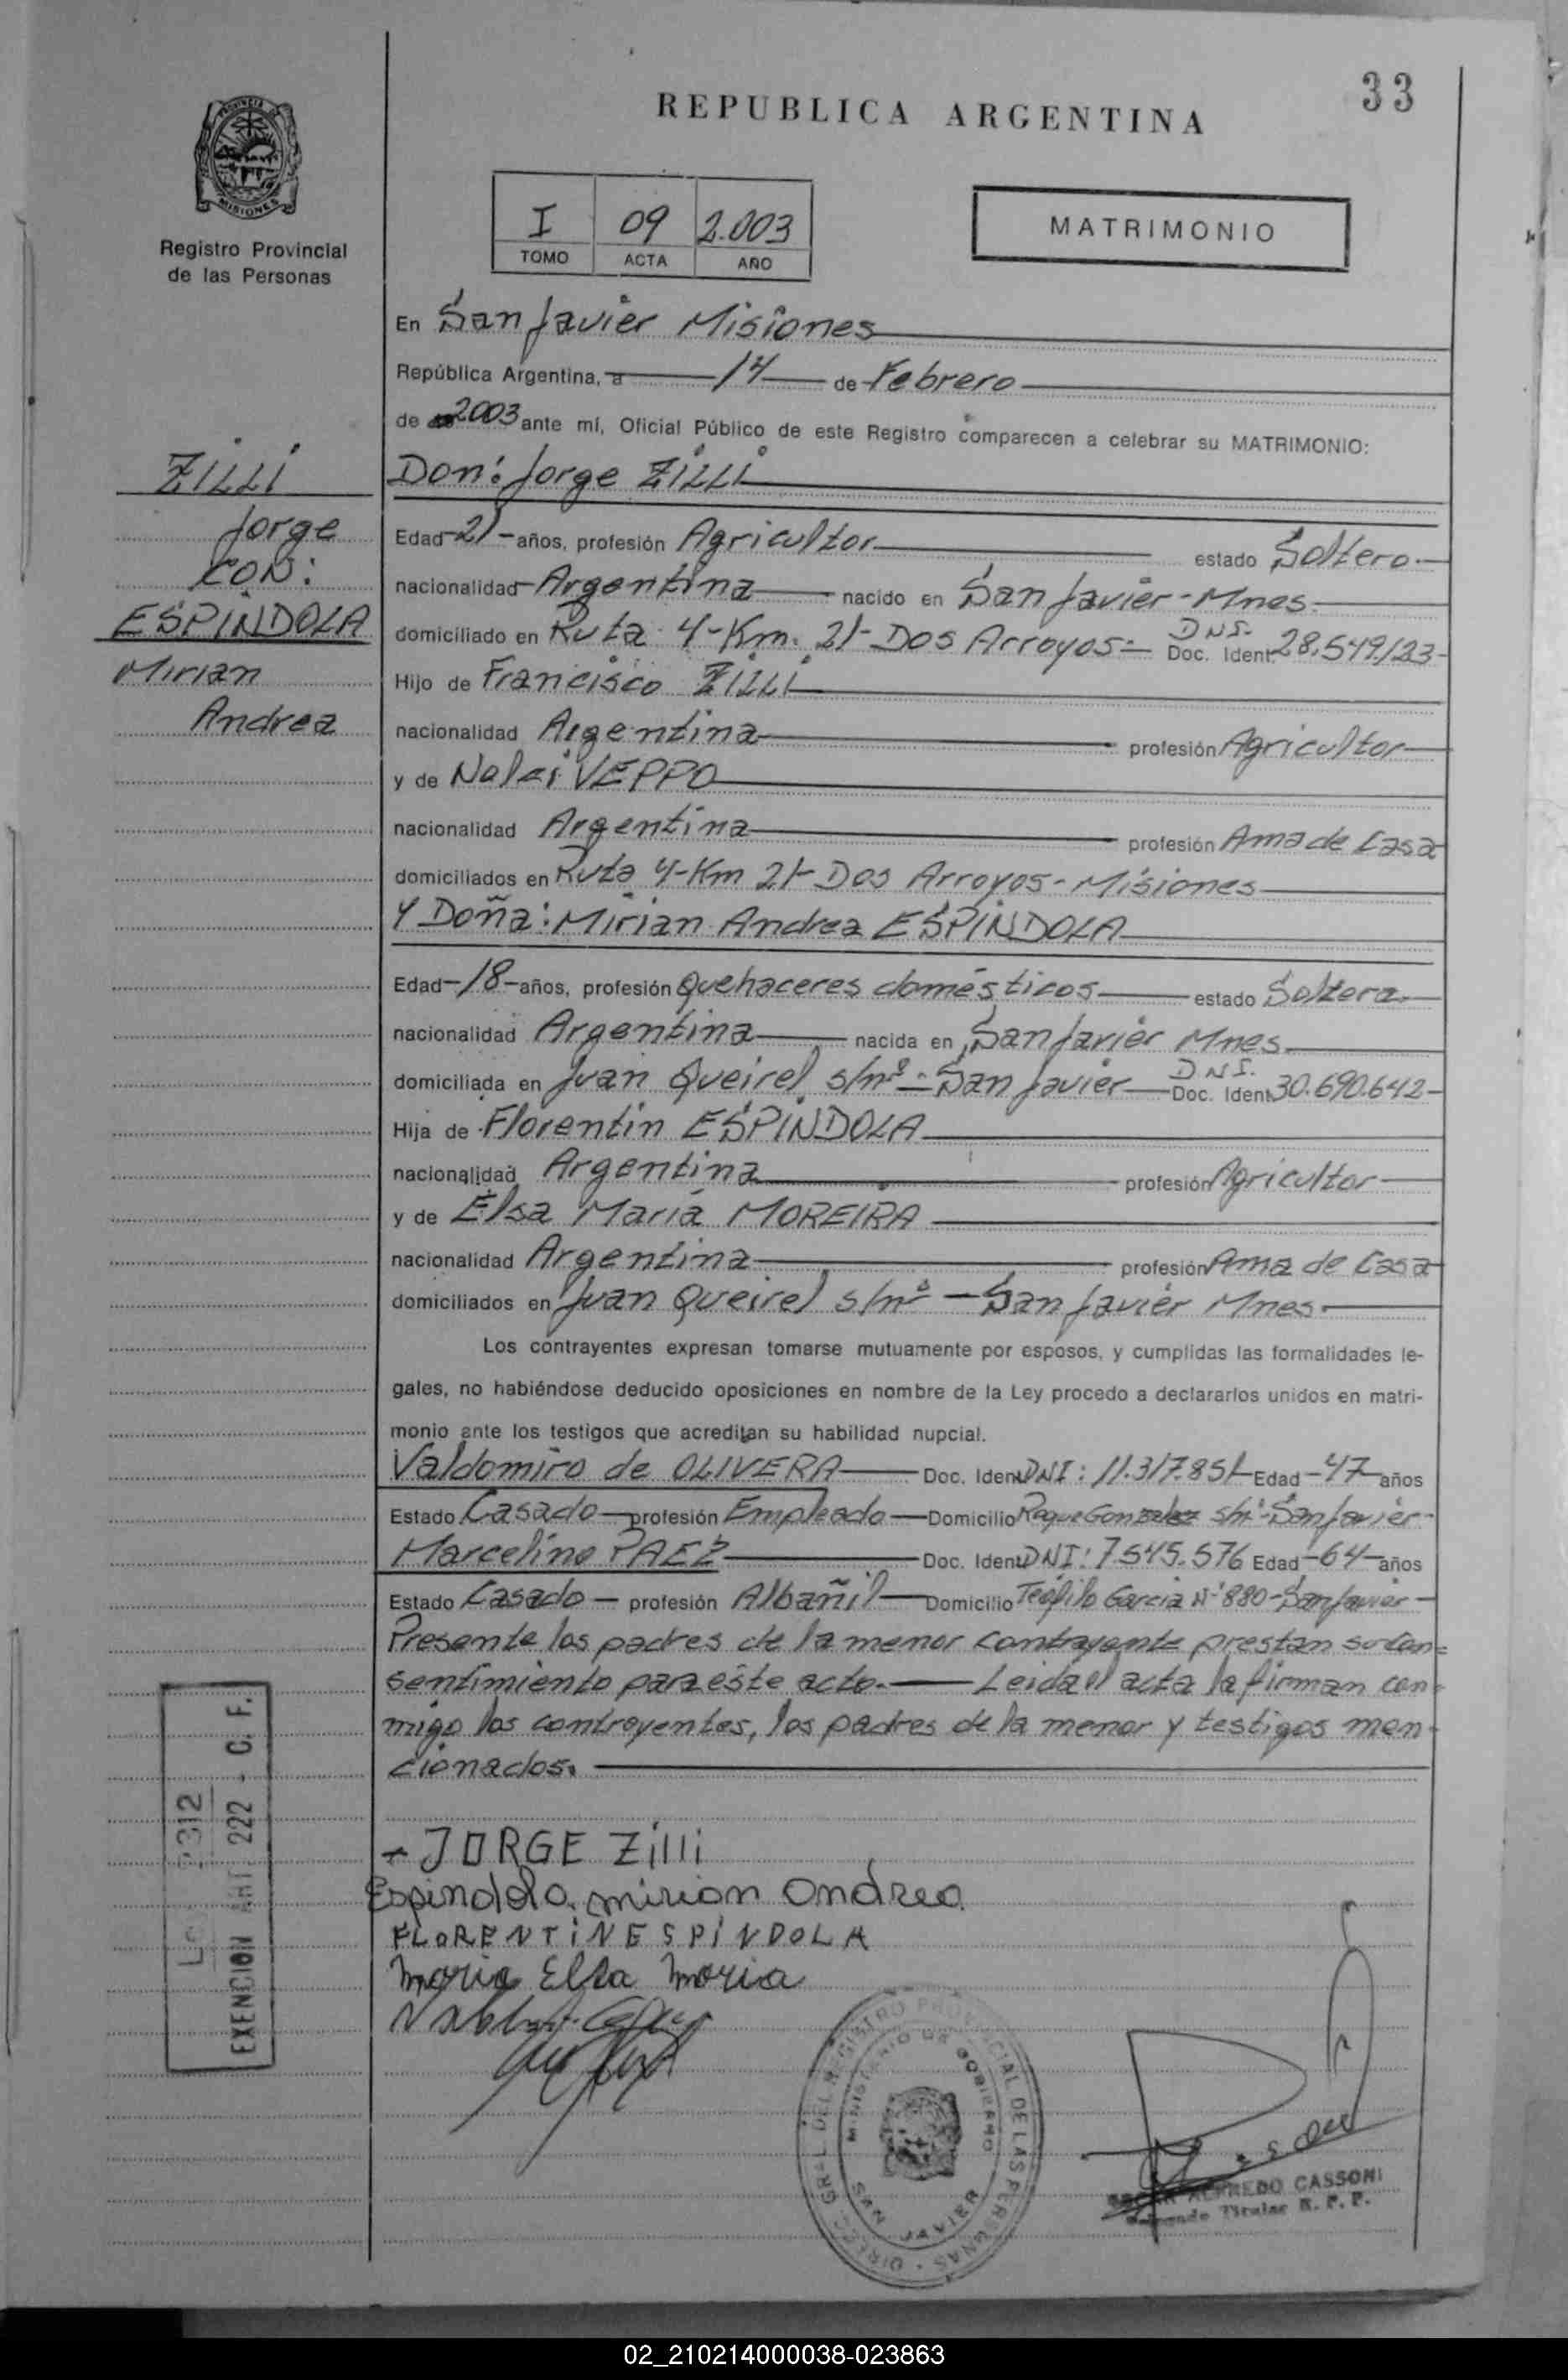 33
REPUBLICA ARGENTINA
PROVINCIA DE
MISIONES
Registro Provincial
de las Personas
I 09 2.003
TOMO ACTA AÑO
MATRIMONIO
En San Javier Misiones
República Argentina, a 14 de Febrero
de 2003 ante mí, Oficial Público de este Registro comparecen a celebrar su MATRIMONIO:
ZILLI
Jorge
CON:
ESPINDOLA
Mirian
Andrea
Don: Jorge ZILLI
Edad 21 años, profesión Agricultor estado Soltero
nacionalidad Argentina nacido en San Javier - Mnes.
domiciliado en Ruta 4-Km. 21- Dos Arroyos= D.N.I. Doc. Ident. 28.549.123-
Hijo de Francisco ZILLI
nacionalidad Argentina profesión Agricultor
y de VEPPO
nacionalidad Argentina profesión Ama de Casa
domiciliados en Ruta 4-Km 21- Dos Arroyos- Misiones
Y Doña: Mirian Andrea ESPINDOLA
Edad-18-años, profesión Quehaceres domésticos estado Soltera
nacionalidad Argentina nacida en San Javier Mnes.
domiciliada en Juan Queirel s/nº = San Javier D.N.I. Doc. Ident. 30.690.642-
Hija de Florentin ESPINDOLA
nacionalidad Argentina profesión Agricultor
y de Elsa María MOREIRA
nacionalidad Argentina profesión Ama de Casa
domiciliados en Juan Queirel s/nº - San Javier Mnes.
Los contrayentes expresan tomarse mutuamente por esposos, y cumplidas las formalidades le-
gales, no habiéndose deducido oposiciones en nombre de la Ley procedo a declararlos unidos en matri-
monio ante los testigos que acreditan su habilidad nupcial.
Valdomiro de OLIVERA Doc. Ident. DNI: 11.317.851 Edad -47- años
Estado Casado profesión Empleado Domicilio Roque Gonzalez s/nº - San Javier-
Marcelino PAEZ Doc. Ident. DNI: 7.545.576 Edad -64- años
Estado Casado profesión Albañil Domicilio Teófilo Garcia Nº 880-San Javier-
Presente los padres de la menor contrayente prestan su con=
sentimiento para este acto. Leida el acta la firman con=
migo los contrayentes, los padres de la menor y testigos men-
cionados.
JORGE Zilli
Espindola mirian Andrea
FLORENTiN ESPiNDOLA
maria Elsa moria
EXENCION ART. 222 - C. F.
2312
DIREC. GRAL. DEL REGISTRO PROVINCIAL DE LAS PERSONAS
MINISTERIO DE GOBIERNO
SAN JAVIER
OSCAR ALFREDO CASSONI
Titular R. P. P.
02_210214000038-023863